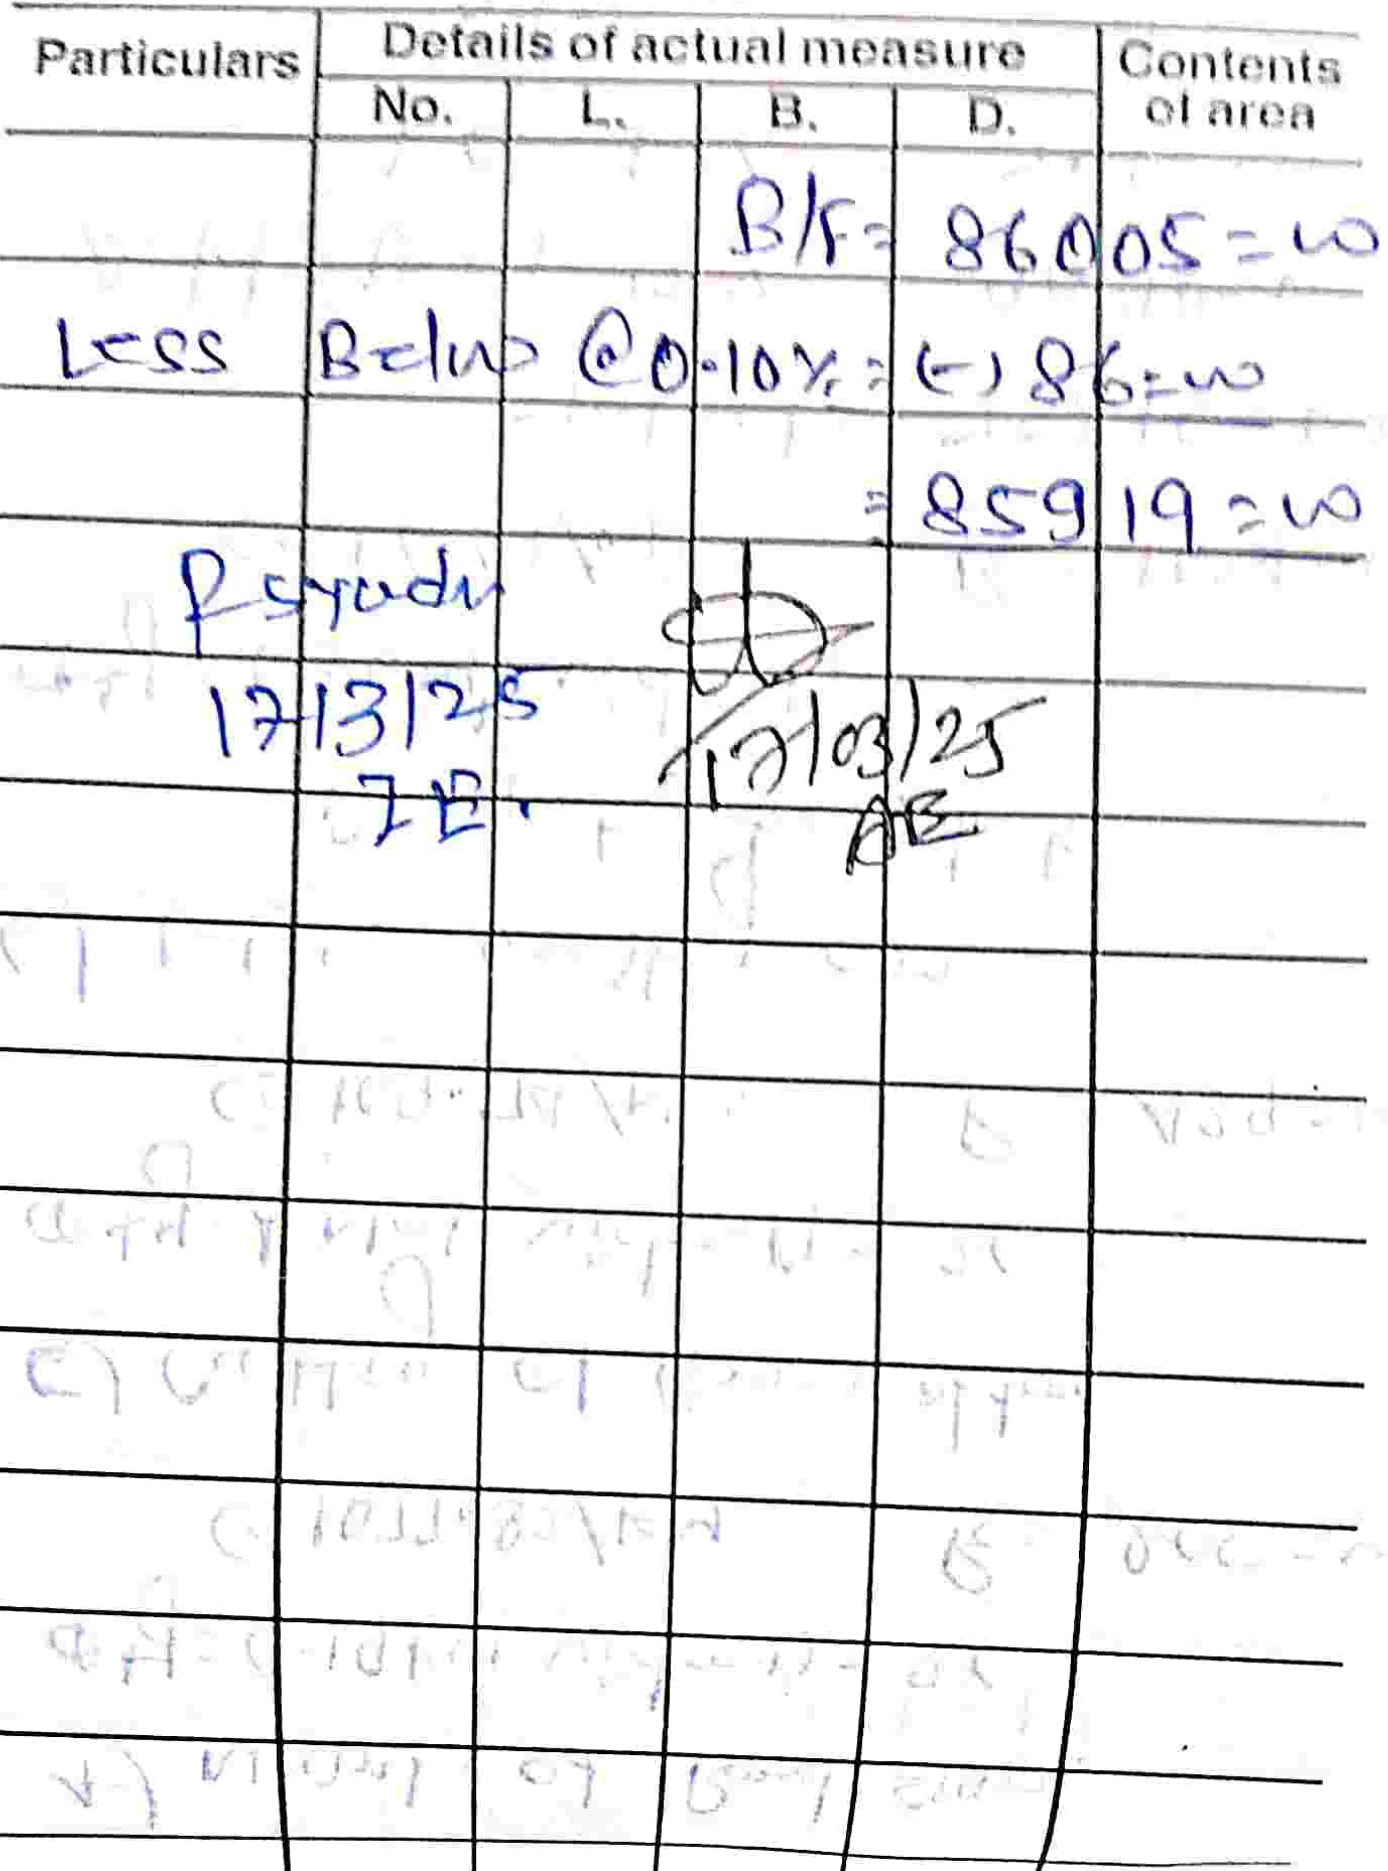 Particulars Details of actual measure Contents of area
No. L. B. D.
B/F = 86005=00
Less Below @ 0.10% = (-) 86=00
= 85919=00
17/3/25
JE.
17/03/25
AE